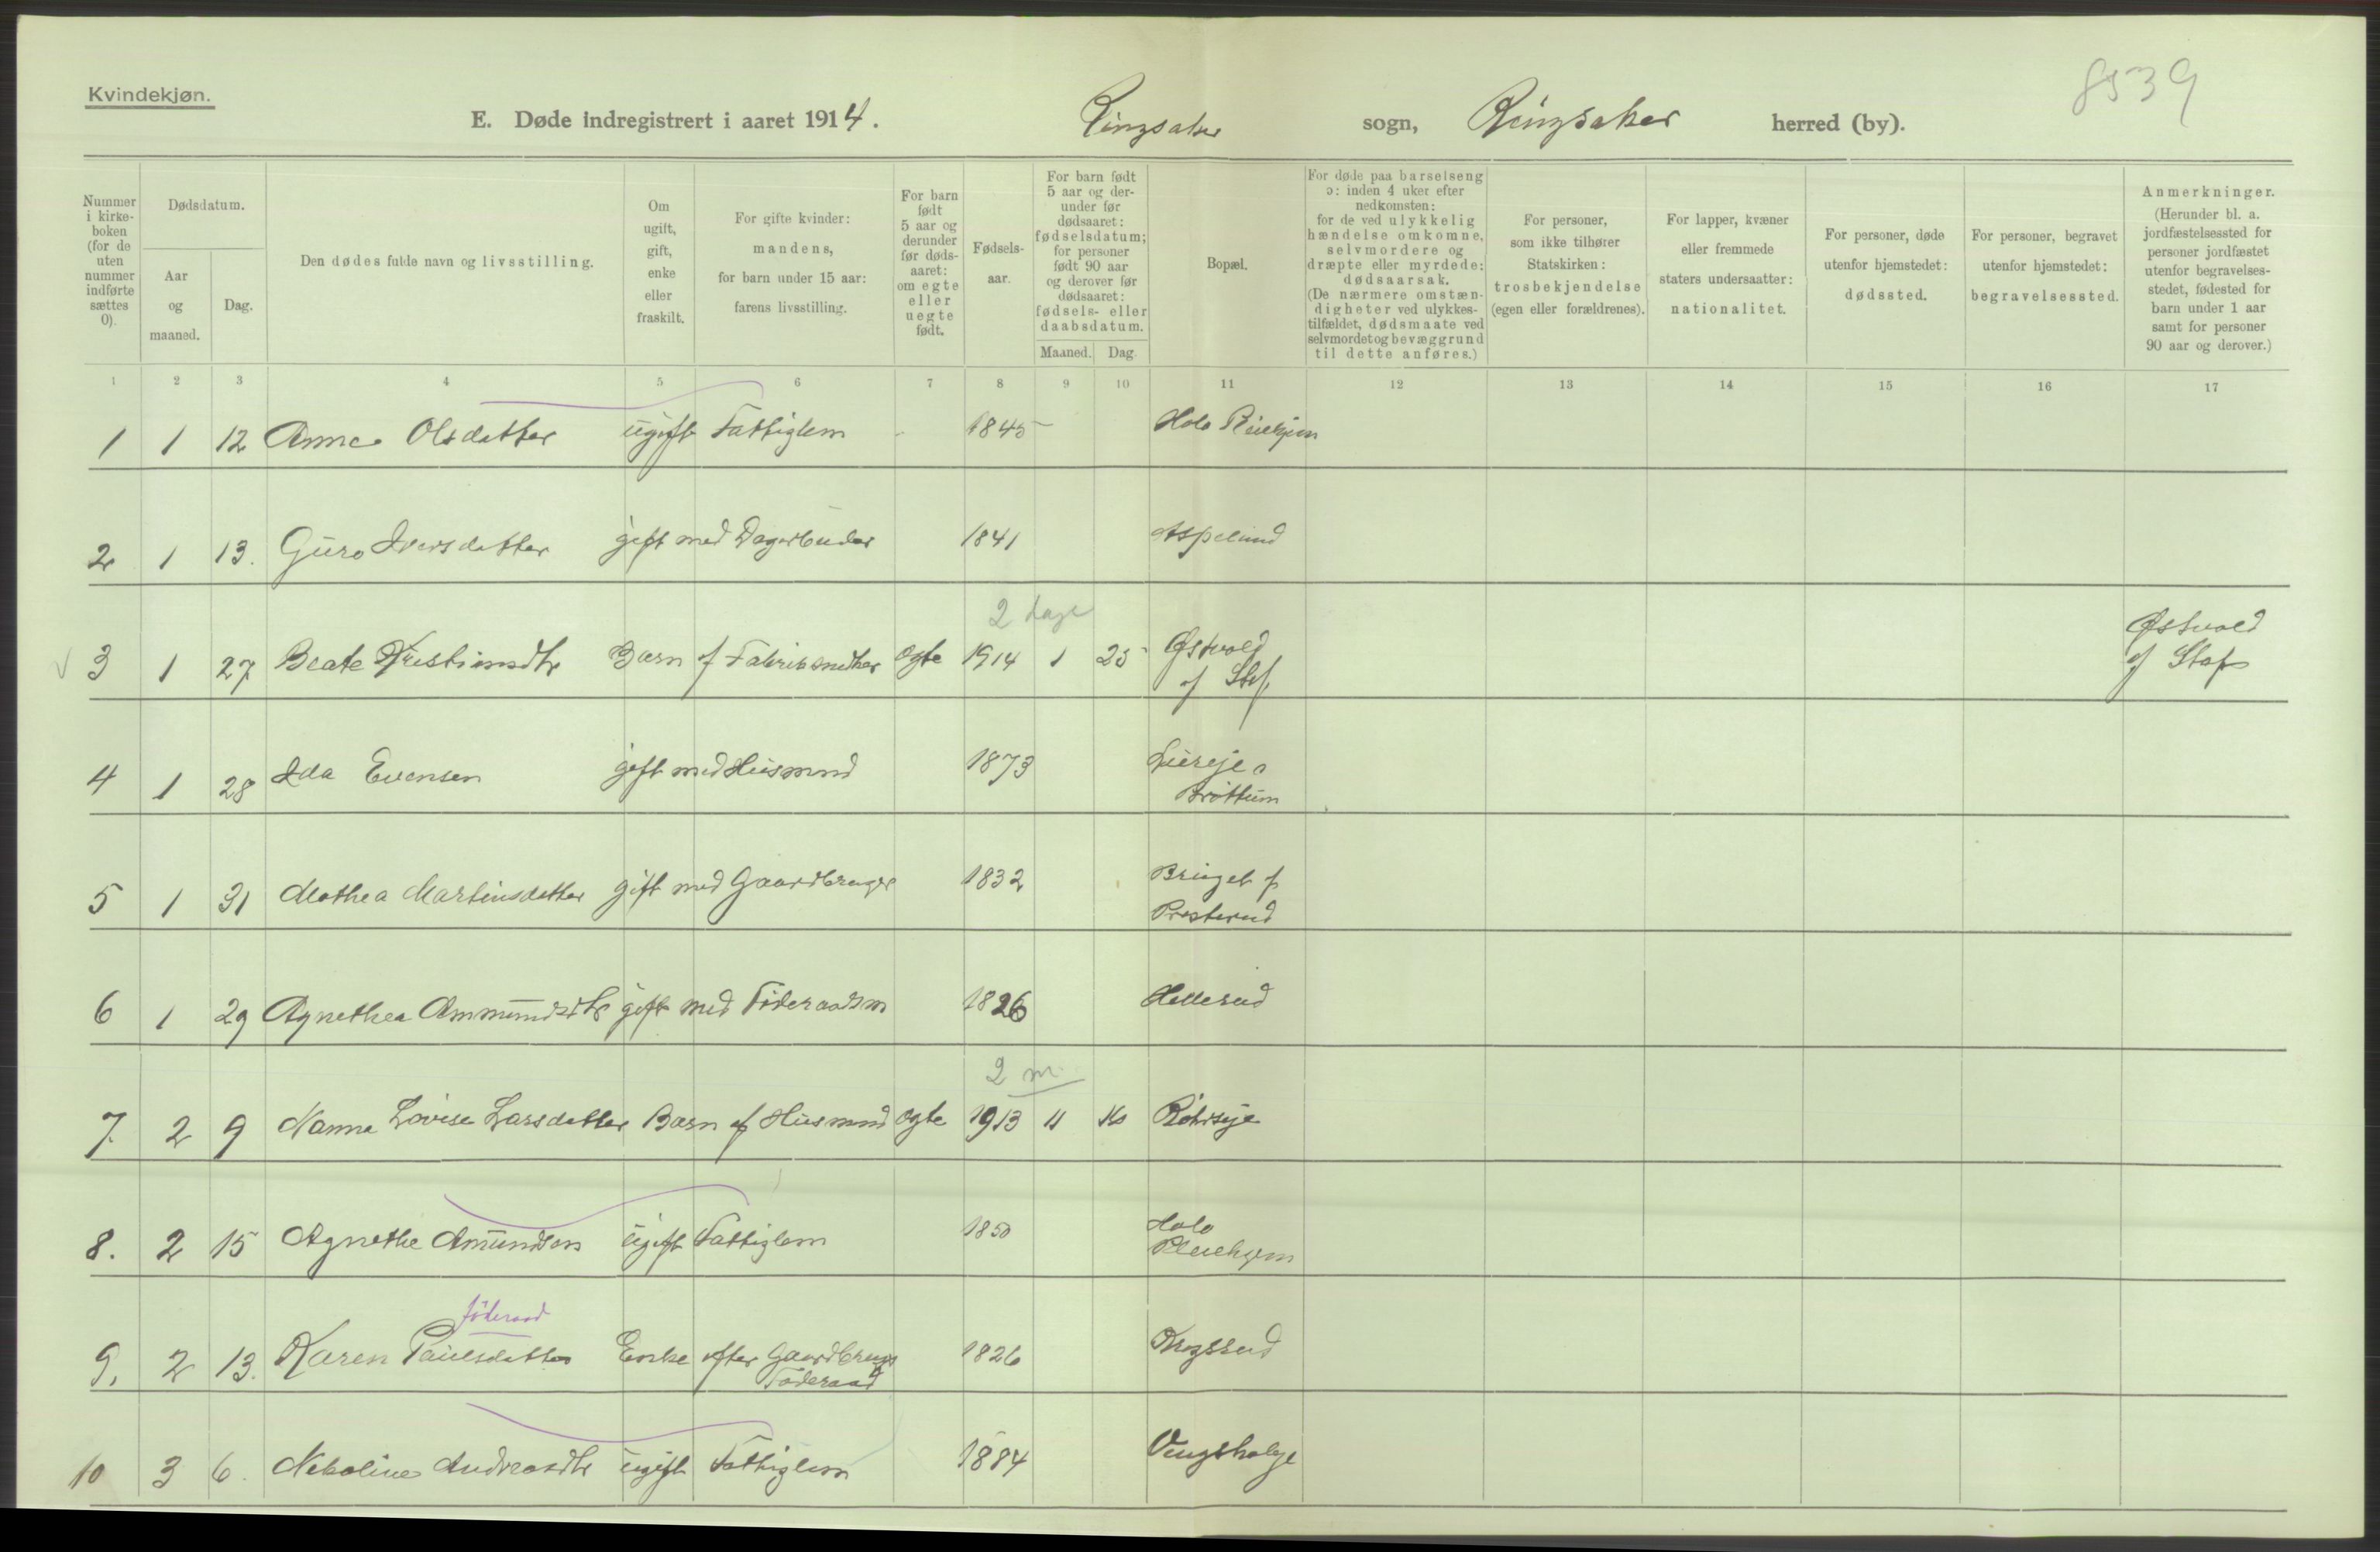 Kvindekjøn.
8539
E. Døde indregistrert i aaret 1914. Ringsaker sogn, Ringsaker herred (by).
Nummer i kirke- boken (for de uten nummer indførte sættes 0).
Dødsdatum.
Aar og maaned.
Dag.
Den dødes fulde navn og livsstilling.
Om ugift, gift, enke eller fraskilt.
For gifte kvinder: mandens, for barn under 15 aar: farens livsstilling.
For barn født 5 aar og derunder før døds- aaret: om egte eller uegte født.
Fødsels- aar.
For barn født 5 aar og der- under før dødsaaret: fødselsdatum; for personer født 90 aar og derover før dødsaaret: fødsels- eller daabsdatum.
Maaned. Dag.
Bopæl.
For døde paa barselseng ɔ: inden 4 uker efter nedkomsten: for de ved ulykkelig hændelse omkomne, selvmordere og dræpte eller myrdede: dødsaarsak. (De nærmere omstæn- digheter ved ulykkes- tilfældet, dødsmaate ved selvmordet og bevæggrund til dette anføres.)
For personer, som ikke tilhører Statskirken: trosbekjendelse (egen eller forældrenes).
For lapper, kvæner eller fremmede staters undersaatter: nationalitet.
For personer, døde utenfor hjemstedet: dødssted.
For personer, begravet utenfor hjemstedet: begravelsessted.
Anmerkninger. (Herunder bl. a. jordfæstelsessted for personer jordfæstet utenfor begravelses- stedet, fødested for barn under 1 aar samt for personer 90 aar og derover.)
1 2 3 4 5 6 7 8 9 10 11 12 13 14 15 16 17
1 1 12 Anne Olsdatter ugift Fattiglem 1845 Holo Pleiehjem
2 1 13. Guro Iversdatter gift med Dagarbeider 1841 Aspelund
2 dage
3 1 27 Beate Kristiansdtr Barn af Fabriksmedker egte 1914 1 25 Østvold
af Stafs
Østvold
af Stafs
4 1 28 Ida Evensen gift med Husmand 1873
Brøttum
5 1 31 Mathea Martinsdatter gift med Gaardbruger 1832
Presterud
6 1 29 Agnethea Ammundsdtr gift med Föderaadsm 1826 Hellerud
2 m.
7. 2 9 Nanna Lovise Larsdatter Barn af Husmand egte 1913 11 Röhrseje
8. 2 15 Agnethe Amundsen ugift Fattiglem 1850 Holo
Pleiehjem
föderaad
9. 2 13. Karen Paulsdatter Enke efter Gaardbruger 1826 Krogsrud
Föderaad
10 3 6. Nekoline Andreasdtr ugift Fattiglem 1884